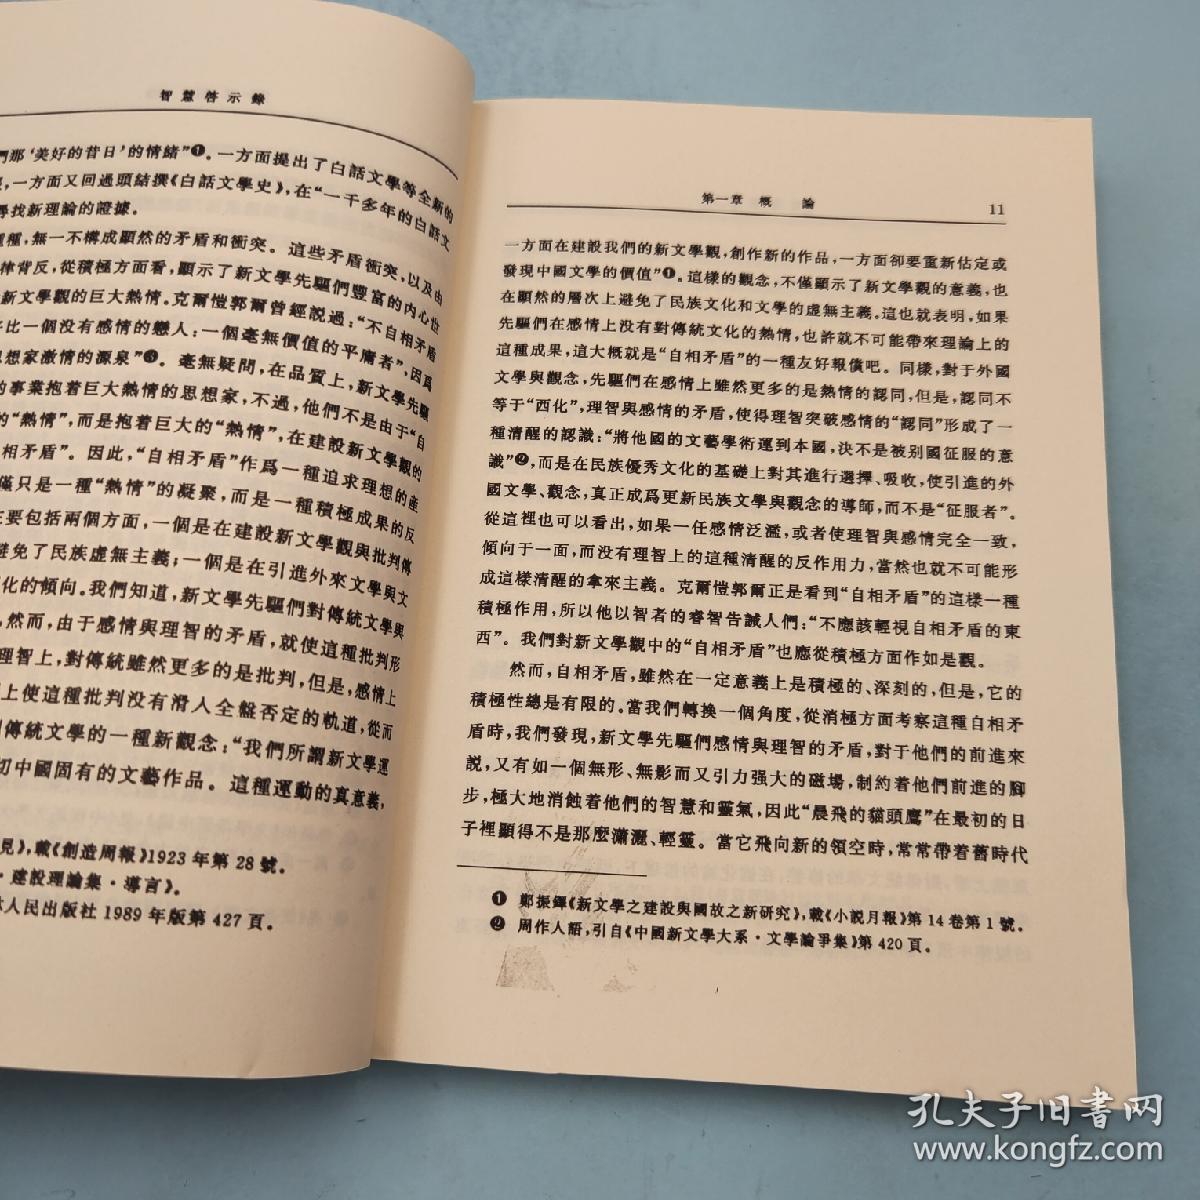 智慧啓示錄
們那‘美好的昔日’的情緒”❶。一方面提出了白話文學等全新的
，一方面又回過頭結撰《白話文學史》，在“一千多年的白話文
尋找新理論的證據。
種，無一不構成顯然的矛盾和衝突。這些矛盾衝突，以及由
律背反，從積極方面看，顯示了新文學先驅們豐富的内心世
新文學觀的巨大熱情。克爾愷郭爾曾經説過：“不自相矛盾
比一個没有感情的戀人：一個毫無價值的平庸者”，因爲
思想家激情的源泉”❸。毫無疑問，在品質上，新文學先驅
的事業抱着巨大熱情的思想家，不過，他們不是由于“自
的“熱情”，而是抱着巨大的“熱情”，在建設新文學觀的
相矛盾”。因此，“自相矛盾”作爲一種追求理想的産
僅只是一種“熱情”的凝聚，而是一種積極成果的反
要包括兩個方面，一個是在建設新文學觀與批判傳
避免了民族虚無主義；一個是在引進外來文學與文
化的傾向。我們知道，新文學先驅們對傳統文學與
，然而，由于感情與理智的矛盾，就使這種批判形
理智上，對傳統雖然更多的是批判，但是，感情上
上使這種批判没有滑人全盤否定的軌道，從而
傳統文學的一種新觀念：“我們所謂新文學運
切中國固有的文藝作品。這種運動的真意義，
見》，載《創造周報》1923年第28號。
·建設理論集·導言》。
人民出版社1989年版第427頁。
第一章 概 論 11
一方面在建設我們的新文學觀，創作新的作品，一方面卻要重新估定或
發現中國文學的價值”❶。這樣的觀念，不僅顯示了新文學觀的意義，也
在顯然的層次上避免了民族文化和文學的虚無主義。這也就表明，如果
先驅們在感情上没有對傳統文化的熱情，也許就不可能帶來理論上的
這種成果，這大概就是“自相矛盾”的一種友好報償吧。同樣，對于外國
文學與觀念，先驅們在感情上雖然更多的是熱情的認同，但是，認同不
等于“西化”，理智與感情的矛盾，使得理智突破感情的“認同”形成了一
種清醒的認識：“將他國的文藝學術運到本國，決不是被别國征服的意
識”❷，而是在民族優秀文化的基礎上對其進行選擇、吸收，使引進的外
國文學、觀念，真正成爲更新民族文學與觀念的導師，而不是“征服者”。
從這裡也可以看出，如果一任感情泛濫，或者使理智與感情完全一致，
傾向于一面，而没有理智上的這種清醒的反作用力，當然也就不可能形
成這樣清醒的拿來主義。克爾愷郭爾正是看到“自相矛盾”的這樣一種
積極作用，所以他以智者的睿智告誡人們：“不應該輕視自相矛盾的東
西”。我們對新文學觀中的“自相矛盾”也應從積極方面作如是觀。
然而，自相矛盾，雖然在一定意義上是積極的、深刻的，但是，它的
積極性總是有限的。當我們轉换一個角度，從消極方面考察這種自相矛
盾時，我們發現，新文學先驅們感情與理智的矛盾，對于他們的前進來
説，又有如一個無形、無影而又引力强大的磁場，制約着他們前進的腳
步，極大地消蝕着他們的智慧和靈氣，因此“晨飛的貓頭鷹”在最初的日
子裡顯得不是那麼瀟灑、輕靈。當它飛向新的領空時，常常帶着舊時代
❶ 鄭振鐸《新文學之建設與國故之新研究》，載《小説月報》第14卷第1號。
❷ 周作人語，引自《中國新文學大系·文學論爭集》第420頁。
孔夫子旧书网
www.kongfz.com